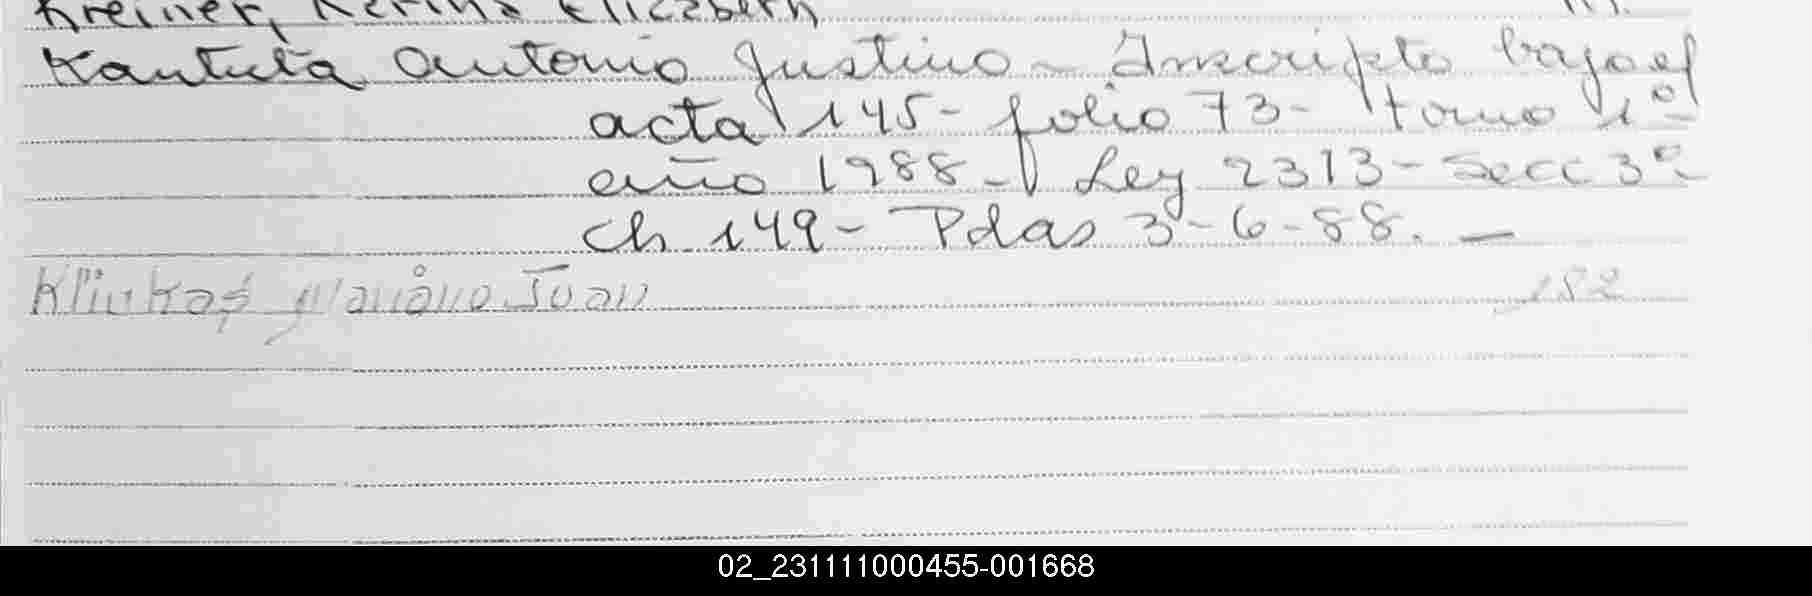 Kreiner, Karina Elizabeth
Kantuta Antonio Justino - Inscripto bajo el
acta 145 - folio 73 - tomo 1º
año 1988 - Ley 2313 - Secc 3º
Ch 149 - Pdas 3-6-88. -
Klinkas Mariano Juan 182
02_231111000455-001668